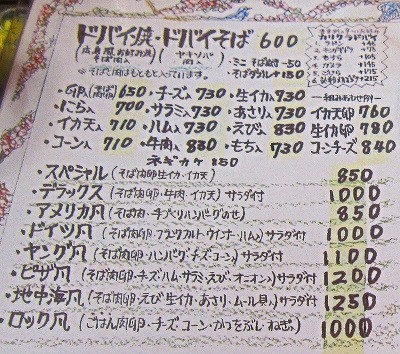 ドバイ焼・ドバイそば 600
広島風お好み焼 そば肉入 (ヤキソバ 肉入)
・ミニ そば抜き -50
・そばダブル +150
※そばと肉はもともと入っています。
カリタラドバイ
一組み合わせ例一
・GP入 650 ・チーズ入 730 ・生イカ入 730
・にら入 700 ・サラミ入 730 ・あさり入 730 イカ天卵 760
・イカ天入 710 ・ハム入 730 ・えび入 830 生イカ卵 780
・コーン入 710 ・牛肉入 880 ・もち入 730 コーンチーズ 840
ネギカケ 150
・スペシャル(そば肉卵生イカ・イカ天) 850
・デラックス(そば肉卵・牛肉・イカ天)サラダ付 1000
・アメリカ風(そば肉・手づくりハンバーグのせ) 850
・ドイツ風(そば肉卵・フランクフルト・ウインナー・ハム)サラダ付 1000
・ヤング風(そば肉卵・ハンバーグ・チーズ・コーン)サラダ付 1100
・ピザ風(そば肉卵・チーズ・ハム・サラミ・えび・オニオン)サラダ付 1200
・地中海風(そば肉卵・えび・生イカ・あさり・ムール貝)サラダ付 1250
・ロック風(ごはん肉卵・チーズ・コーン・かつをぶし・ねぎ) 1000